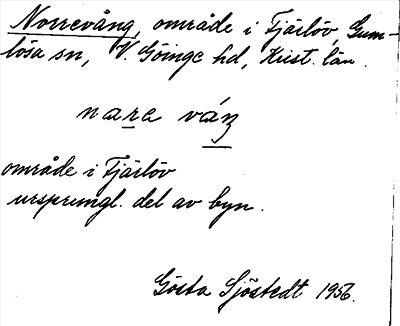 Norrevång, område i Fjärlöv, Gum-
lösa sn, V. Göinge hd, Krist. län.
nara váŋ
område i Fjärlöv
ursprungl. del av byn.
Gösta Sjöstedt 1956.